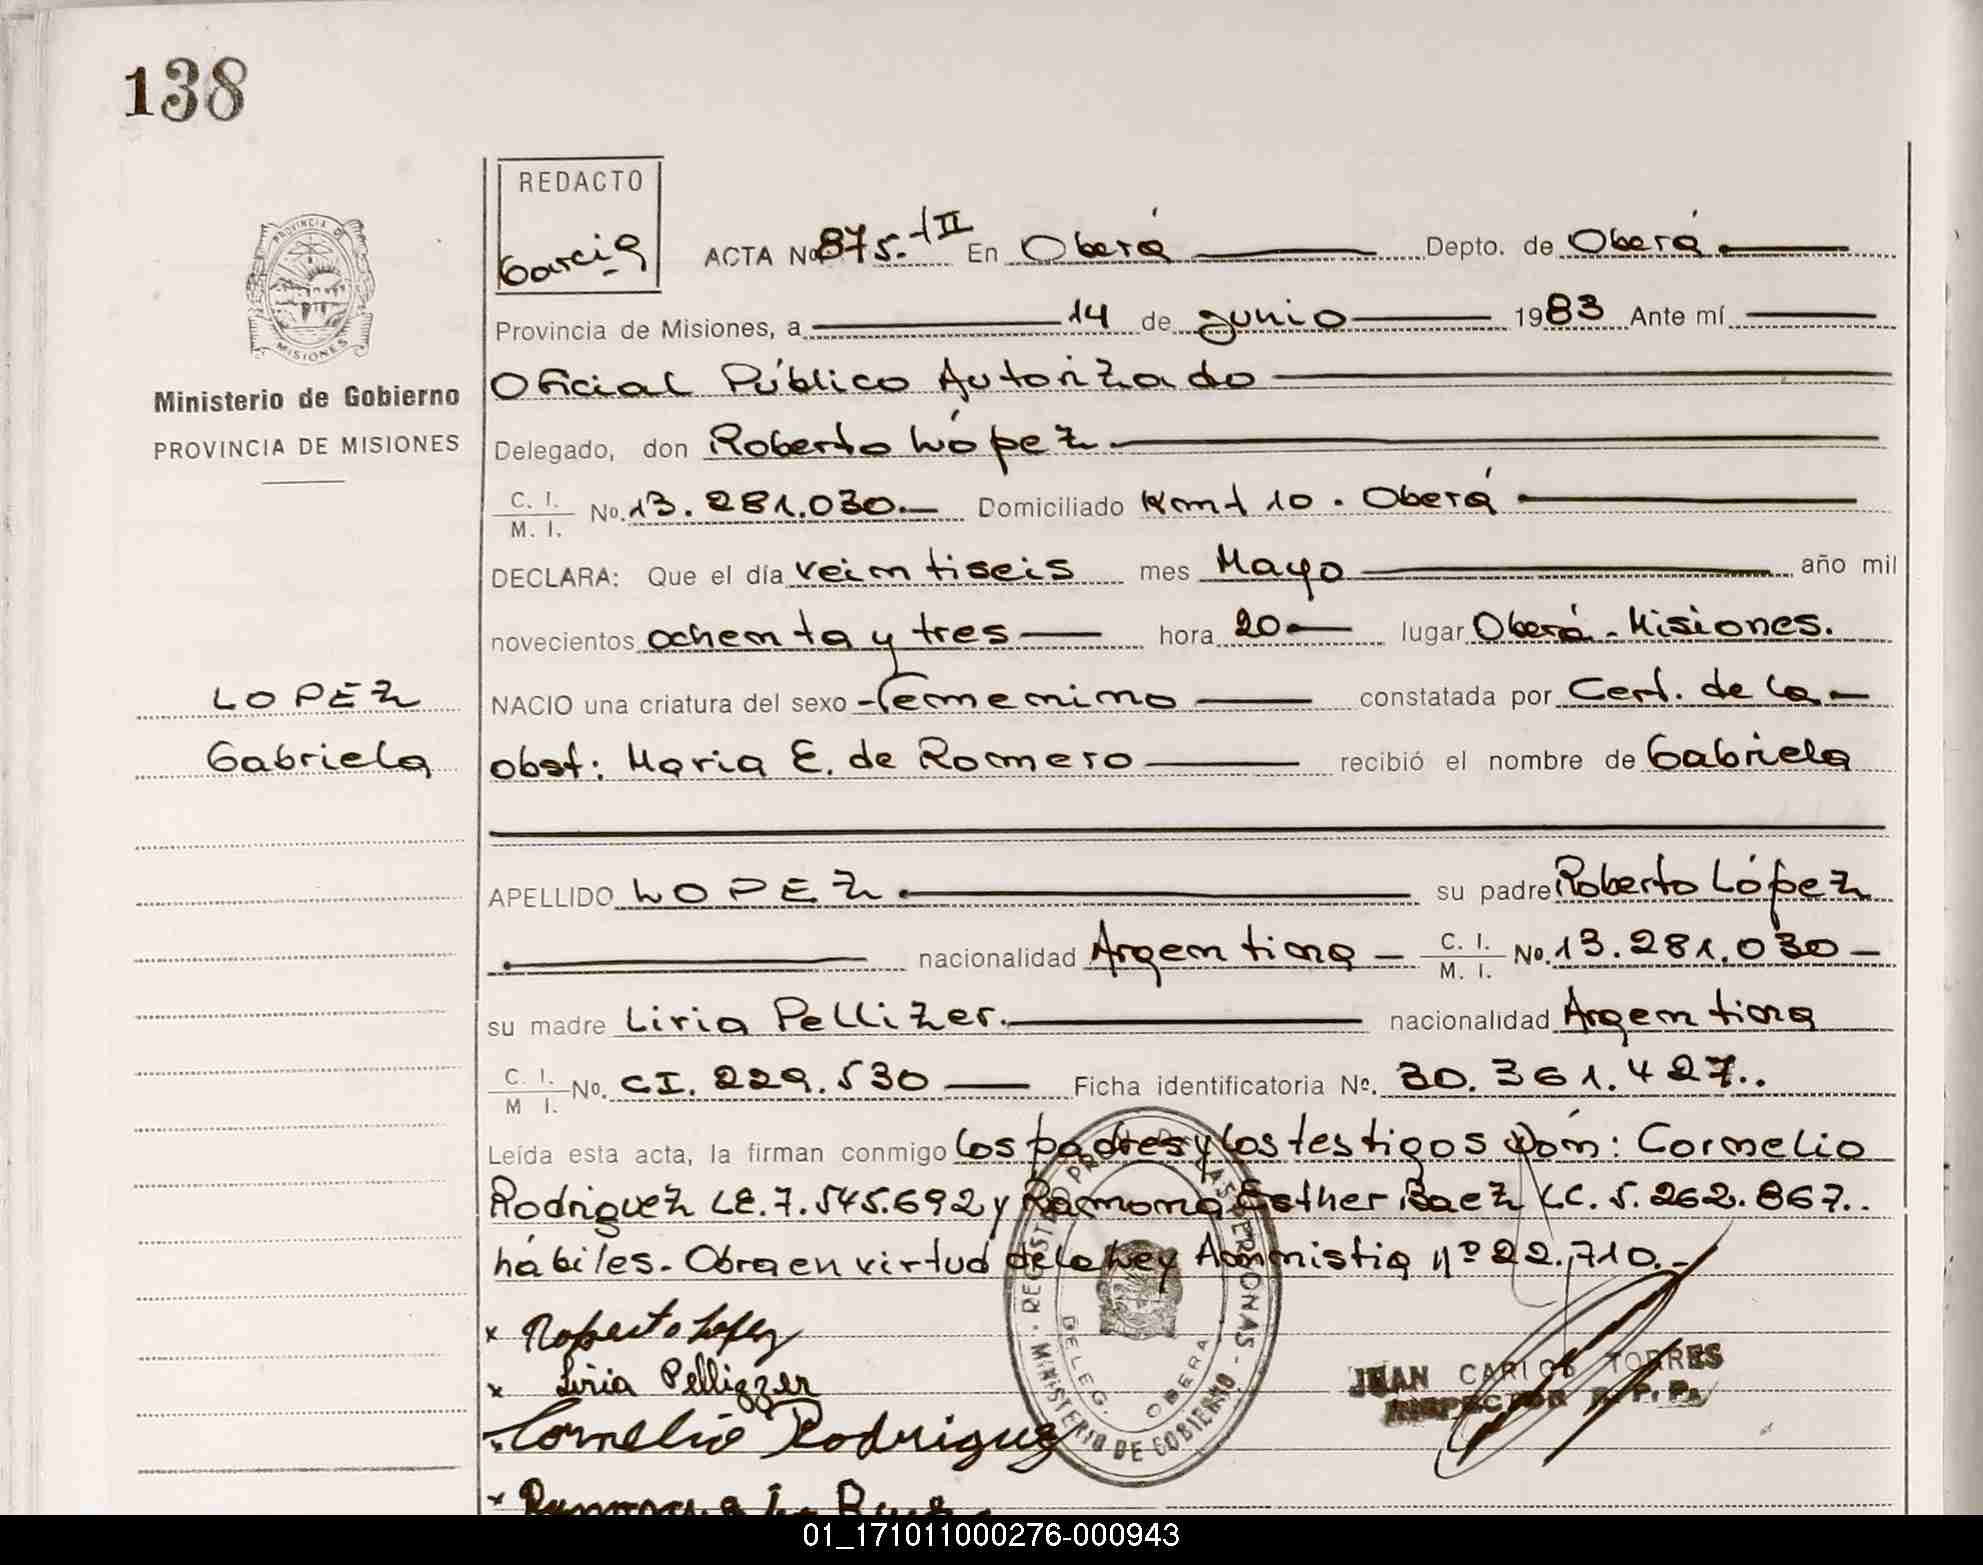 138
REDACTO
Garcia
ACTA No 875.-tII En Oberá Depto. de Oberá
Provincia de Misiones, a 14 de junio 1983 Ante mí
PROVINCIA DE
MISIONES
Ministerio de Gobierno
PROVINCIA DE MISIONES
Oficial Público Autorizado
Delegado, don Roberto López
C. I.
M. I. No. 13.281.030.— Domiciliado Kmt 10. Oberá
DECLARA: Que el día veintiseis mes Mayo año mil
novecientos ochenta y tres hora 20 lugar Oberá-Misiones.
LOPEZ
Gabriela
NACIO una criatura del sexo femenino constatada por Cert. de la
obst: Maria E. de Romero recibió el nombre de Gabriela
APELLIDO LOPEZ su padre Roberto López
nacionalidad Argentina C. I.
M. I. No. 13.281.030
su madre Liria Pellizer. nacionalidad Argentina
C. I.
M I. No. CI. 229.530 Ficha identificatoria No. 30.361.427..
Leída esta acta, la firman conmigo los padres y los testigos Dón: Cornelio
Rodriguez LE.7.545.692 y Ramona Esther Baez LC. 5.262.867..
hábiles. Obra en virtud de la Ley Ammistia nº 22.710.-
x Roberto Lopez
x Liria Pellizzer
Cornelio Rodriguez
MINISTERIO DE GOBIERNO
DELEG. OBERA
JUAN CARLOS TORRES
INSPECTOR R. P. Ps.
01_171011000276-000943